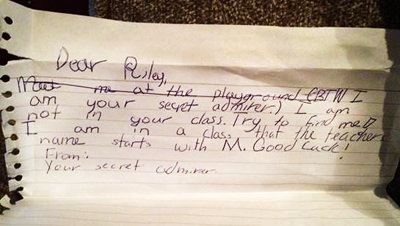 Dear Riley,
Meet me at the playground (BTW I
am your secret admirer.) I am
not in your class. Try to find me!?
I am in a class that the teachers
name starts with M. Good Luck!
From:
Your secret admirer